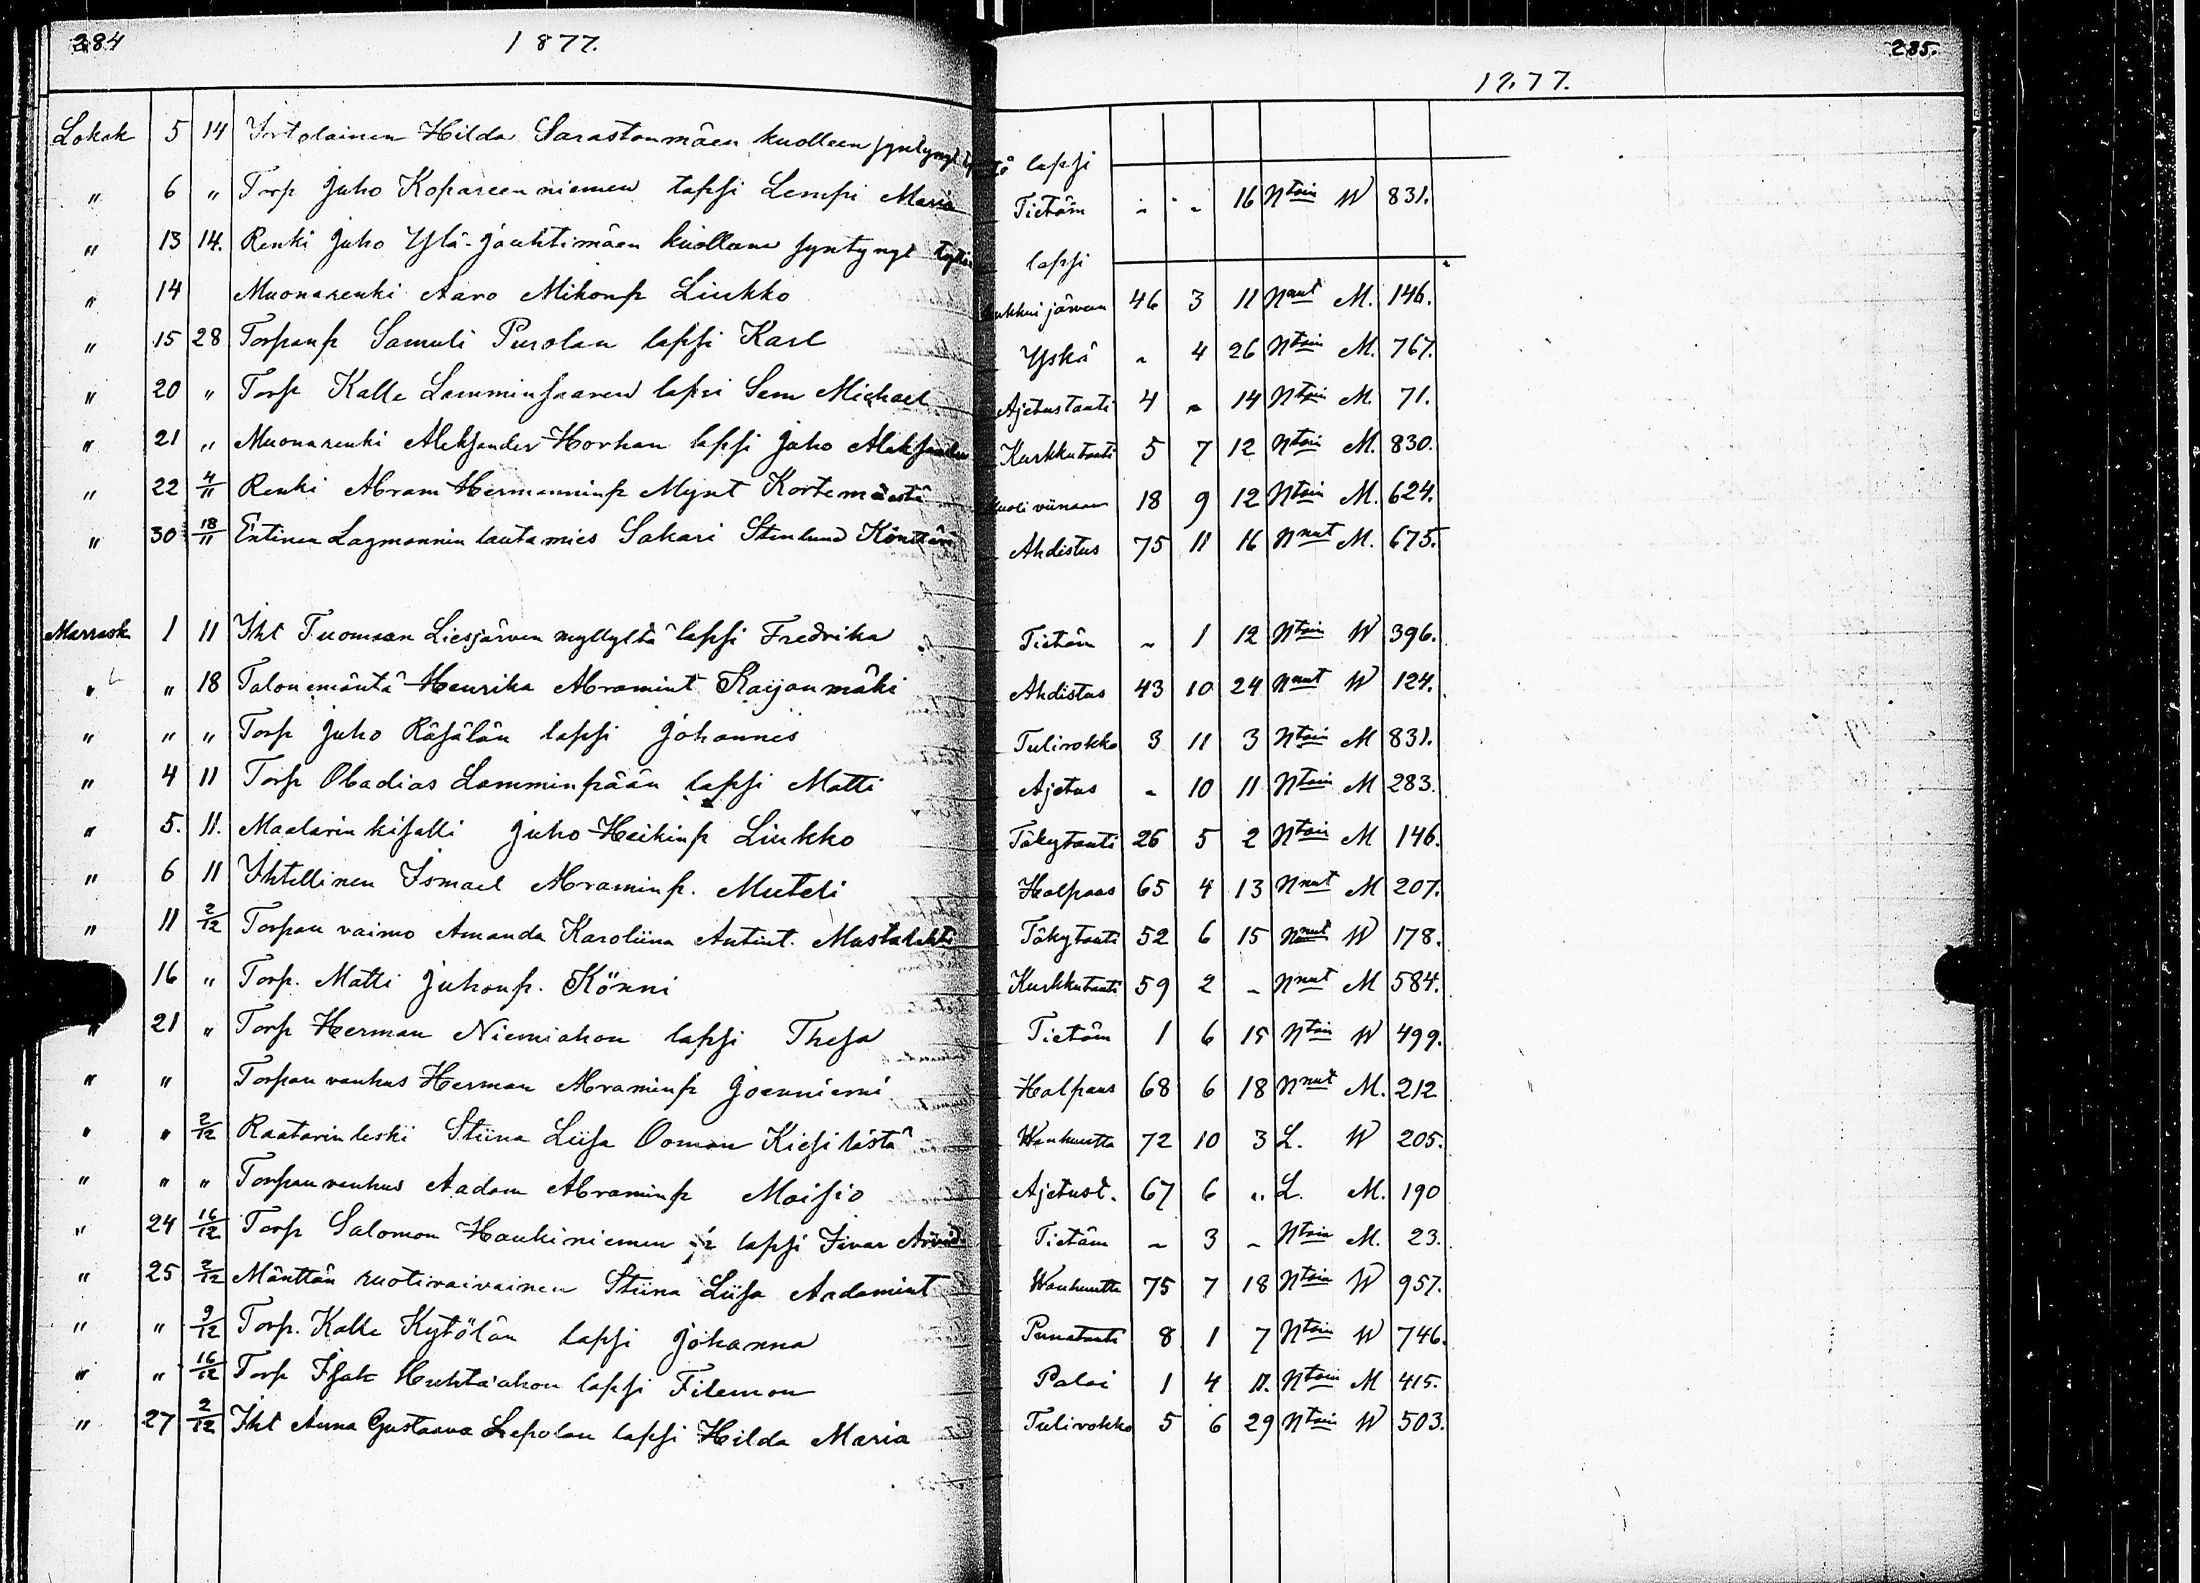 284
1877.
285.
1877.
Lokak 5 14 Irtolainen Hilda Sarastonmäen kuolleen syntynyt lapsi
" 6 " Torp Juho Kopareenniemen lapsi Lempi Maria Tietäm - - 16 Ntoin W 831.
" 13 14. Renki Juho Ylä-Jauhtimäen kuollena syntynyt lapsi
" 14 Muonarenki Aaro Mikonp Liukko 46 3 11 Nnut M. 146.
" 15 28 Torpanp Samuli Purolan lapsi Karl Yskä - 4 26 Ntoin M. 767.
" 20 " Torp Kalle Lamminsaaren lapsi Sem Michael Ajetustauti 4 - 14 Ntoin M. 71.
" 21 " Muonarenki Aleksander Horhan lapsi Juho Aleksander Kurkkutauti 5 7 12 Ntoin M. 830.
" 22 4/11 Renki Abram Hermanninp Mynt Kortemäestä 18 9 12 Ntoin M. 624.
" 30 18/11 Entinen Lagmannin lautamies Sakari Stenlund Ahdistus 75 11 16 Nnut M. 675.
Marrask 1 11 Iht Tuomaan Liesjärven myllyltä lapsi Fredrika Tietäm - 1 12 Ntoin W 396.
" " 18 Talonemäntä Henrika Abramint Raijanmäki Ahdistus 43 10 24 Nnut W 124.
" " " Torp Juho Räsälän lapsi Johannes Tulirokko 3 11 3 Ntoin M 831.
" 4 11 Torp Obadias Lamminpään lapsi Matti Ajetus - 10 11 Ntoin M 283.
" 5. 11. Maalarin kisälli Juho Heikinp Liukko Täkytauti 26 5 2 Ntoin M 146.
" 6 11 Ihtellinen Ismael Abraminp. Muteli Halpaus 65 4 13 Nnut M 207.
" 11 2/12 Torpan vaimo Amanda Karoliina Antint. Mustalahti Täkytauti 52 6 15 Nnut W 178.
16 " Torp. Matti Juhonp. Könni Kurkkutauti 59 2 - Nnut M 584.
" 21 " Torp Herman Niemiahon lapsi Thesa Tietäm 1 6 15 Ntoin W 499.
" " Torpan vanhus Herman Abraminp Joenniemi Halpaus 68 6 18 Nnut M. 212
" " 2/12 Raatarin leski Stiina Liisa Ooman Kiesilästä Wanhuutta 72 10 3 L. W 205.
" " " Torpan vanhus Aadam Abraminp Moisio Ajetust. 67 6 " L. M. 190
" 24 16/12 Torp Salomon Haukiniemen lapsi Iivar Arvid Tietäm - 3 - Ntoin M. 23.
" 25 2/12 Mänttän ruotivaivainen Stiina Liisa Aadamint Wanhuutta 75 7 18 Ntoin W 957.
" " 9/12 Torp. Kalle Kytölän lapsi Johanna Punatauti 8 1 7 Ntoin W 746.
" " 16/12 Torp Isak Huhta'ahon lapsi Filemon Paloi 1 4 11. Ntoin M 415.
" 27 2/12 Iht Anna Gustaava Lepolan lapsi Hilda Maria Tulirokko 5 6 29 Ntoin W 503.